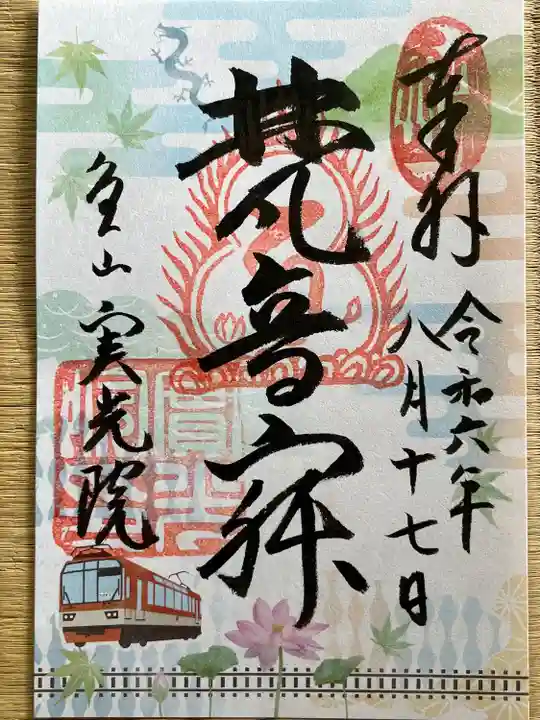 奉拝
令和六年
八月十七日
梵音寂
魚山 実光院